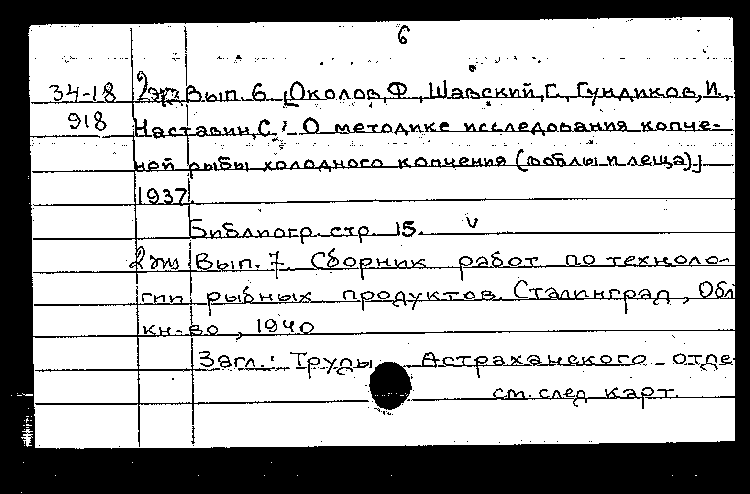 6
34-18 2жз Вып. 6. [Околов, Ф., Шавский, Г., Гундиков, И.,
918 Наставин, С.: О методике исследования копче-
ной рыбы холодного копчения (воблы и леща)]
1937.
Библиогр. стр. 15. v
2жз Вып. 7. Сборник работ по техноло-
гии рыбных продуктов. Сталинград, Обл
кн-во, 1940
Загл.: Труды Астраханского отде-
см. след карт.